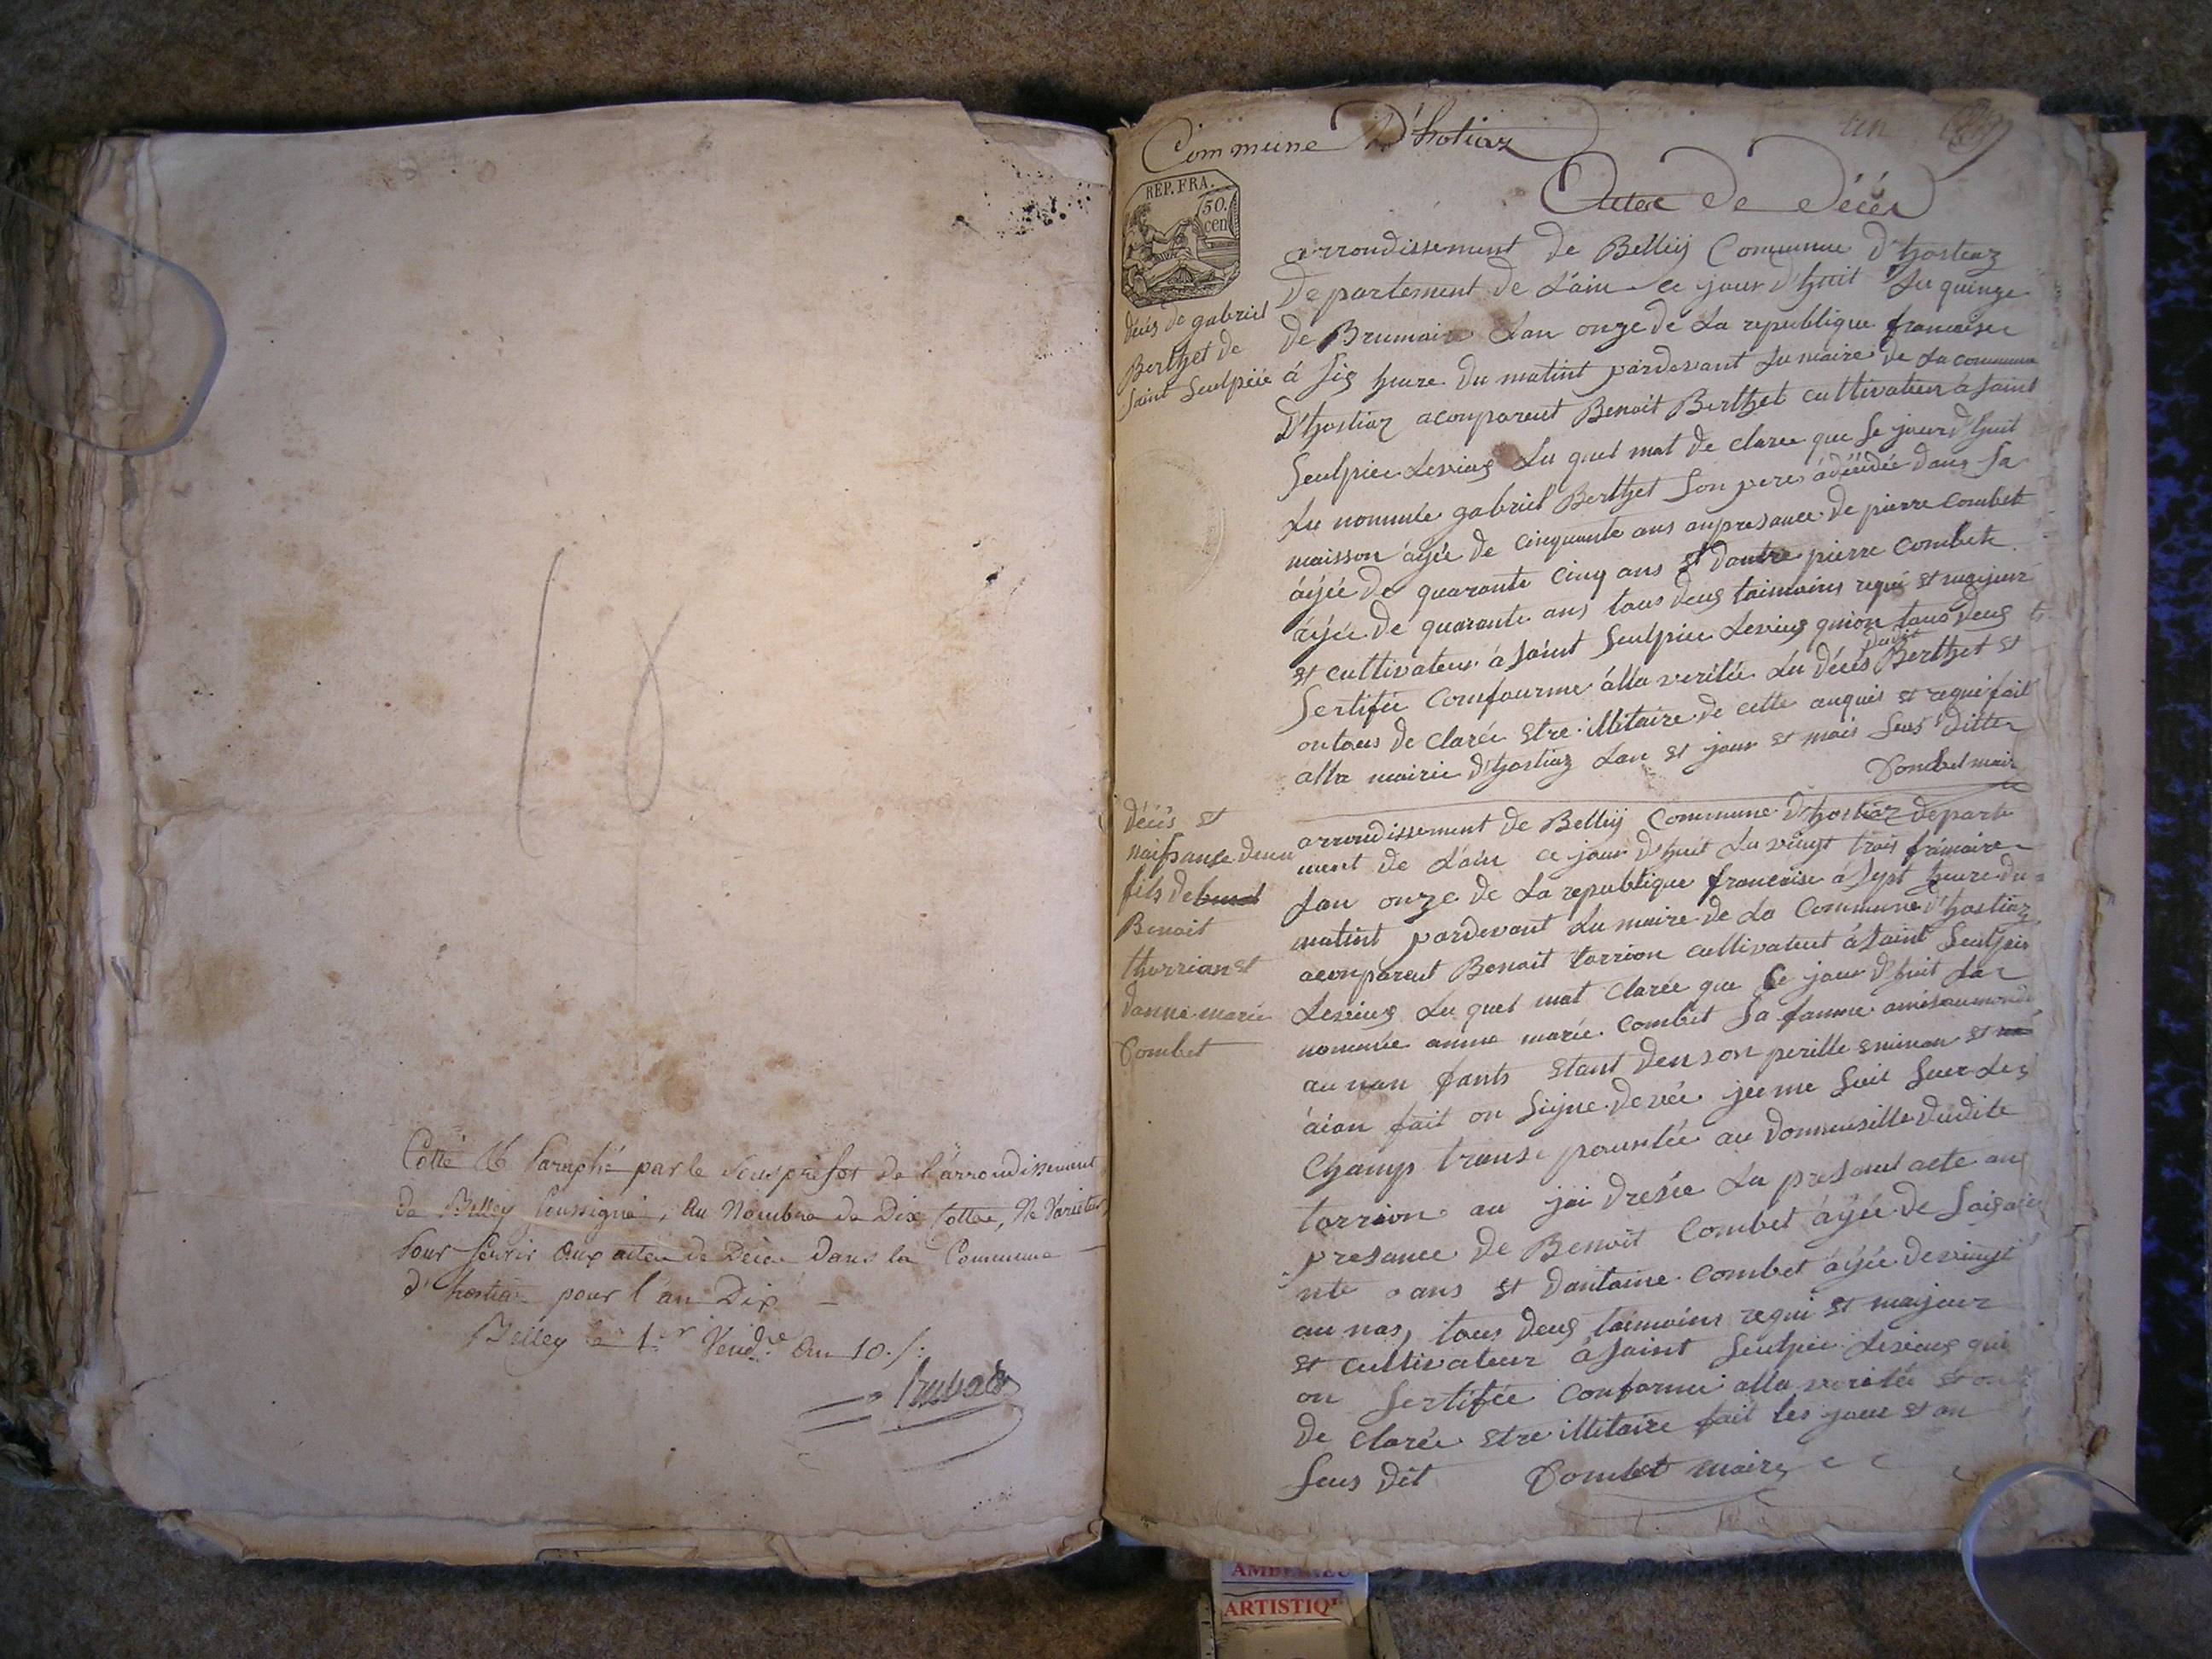 18
Cotté & Paraphé par le sous préfet de l'arrondissement
de Belley soussigné, au Nombre de Dix Cottes, Ne Varietur
Pour servir aux actes de Décès dans la Commune
d'hostiaz pour l'an Dix
Belley le 1er Vend.re An 10./.
Commune D'hotiaz
un
REP. FRA.
50.
cen
Actes De Décès
décés de gabriel
Berthet de
saint Seulpice
arrondissement de Belleij Commune d'hostiaz
Departement de L'ain ce jour d'huit Lu quinze
de Brumaire Lan onze de La republique francaise
á sig heure du matint pardevant Lu maire de La commune
D'hostiaz aconpareut Benoit Berthet cultivateur a saint
Seulpice Levieug Lu quel mat de claree que se jour d'huit
Lu nommée gabriel Berthet son pere adécidée dans sa
maisson âgée de cinquante ans anpresance de pierre combet
âgée de quarante cinq ans et dautre pierre combete
âgée de quarante ans tous deug taimoins requi et majeur
et cultivateur á saint Seulpice Levieug quion tous deug
sertifiée comfourme álla veritée Lu décés dudit Berthet et
ontous de clarée etre illitaire de cette anquis et requi fait
alla mairie d'hostiaz Lan et jour et mois sus ditte
Combet maire
décés et
naissance deun
fils de
Benoit
thorrian et
danne marie
Combet
arrondissement de Belleij Commune D'hostiaz departe
ment de L'ain ce jour d'huit Lu vingt trois frimaire
Lan onze de La republique francaise á sept heure du
matint pardevant Lu maire de La Commune d'hostiaz
aconpareut Benoit torrion cultivateut á saint Seulpis
Levieug Lu quel mat clarée que se jour d'huit La
nommée anne marie Combet sa famme amis au monde
au nun fants etant den son perille eminan et
áian fait on signe de vée jeeme suis suer Les
Champ transe pourtée au dommesille dudite
torrion au jai dresée Lu presant acte an
presance de Benoit Combet âyée de soisaie
nte ans et dantoine Combet âyée de vingt
au nas, tous deug taimoins requi et majeur
et cultivateur á saint Seulpice Levieug qui
on sertifée conforme alla veritée et on
de clarée etre illitaire fait les jour et an
sus dit Combet maire
ARTISTIQ